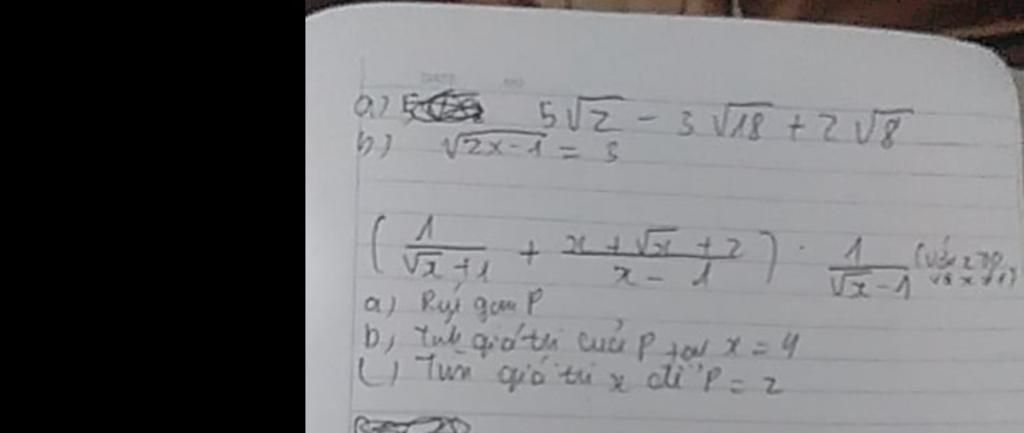 a) 5√2 - 3√18 + 2√8
b) √(2x-1) = 3
(1/(√x+1) + (x+√x+2)/(x-1)) · 1/(√x-1) (với x ≥ 0, và x ≠ 1)
a) Rút gọn P
b) Tính giá trị của P tại x = 4
c) Tìm giá trị x để P = 2